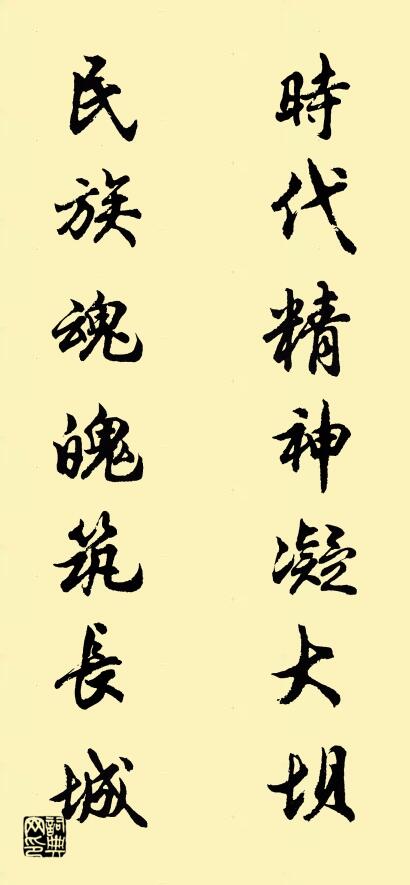 時代精神凝大坝
民族魂魄筑長城
詞典网印